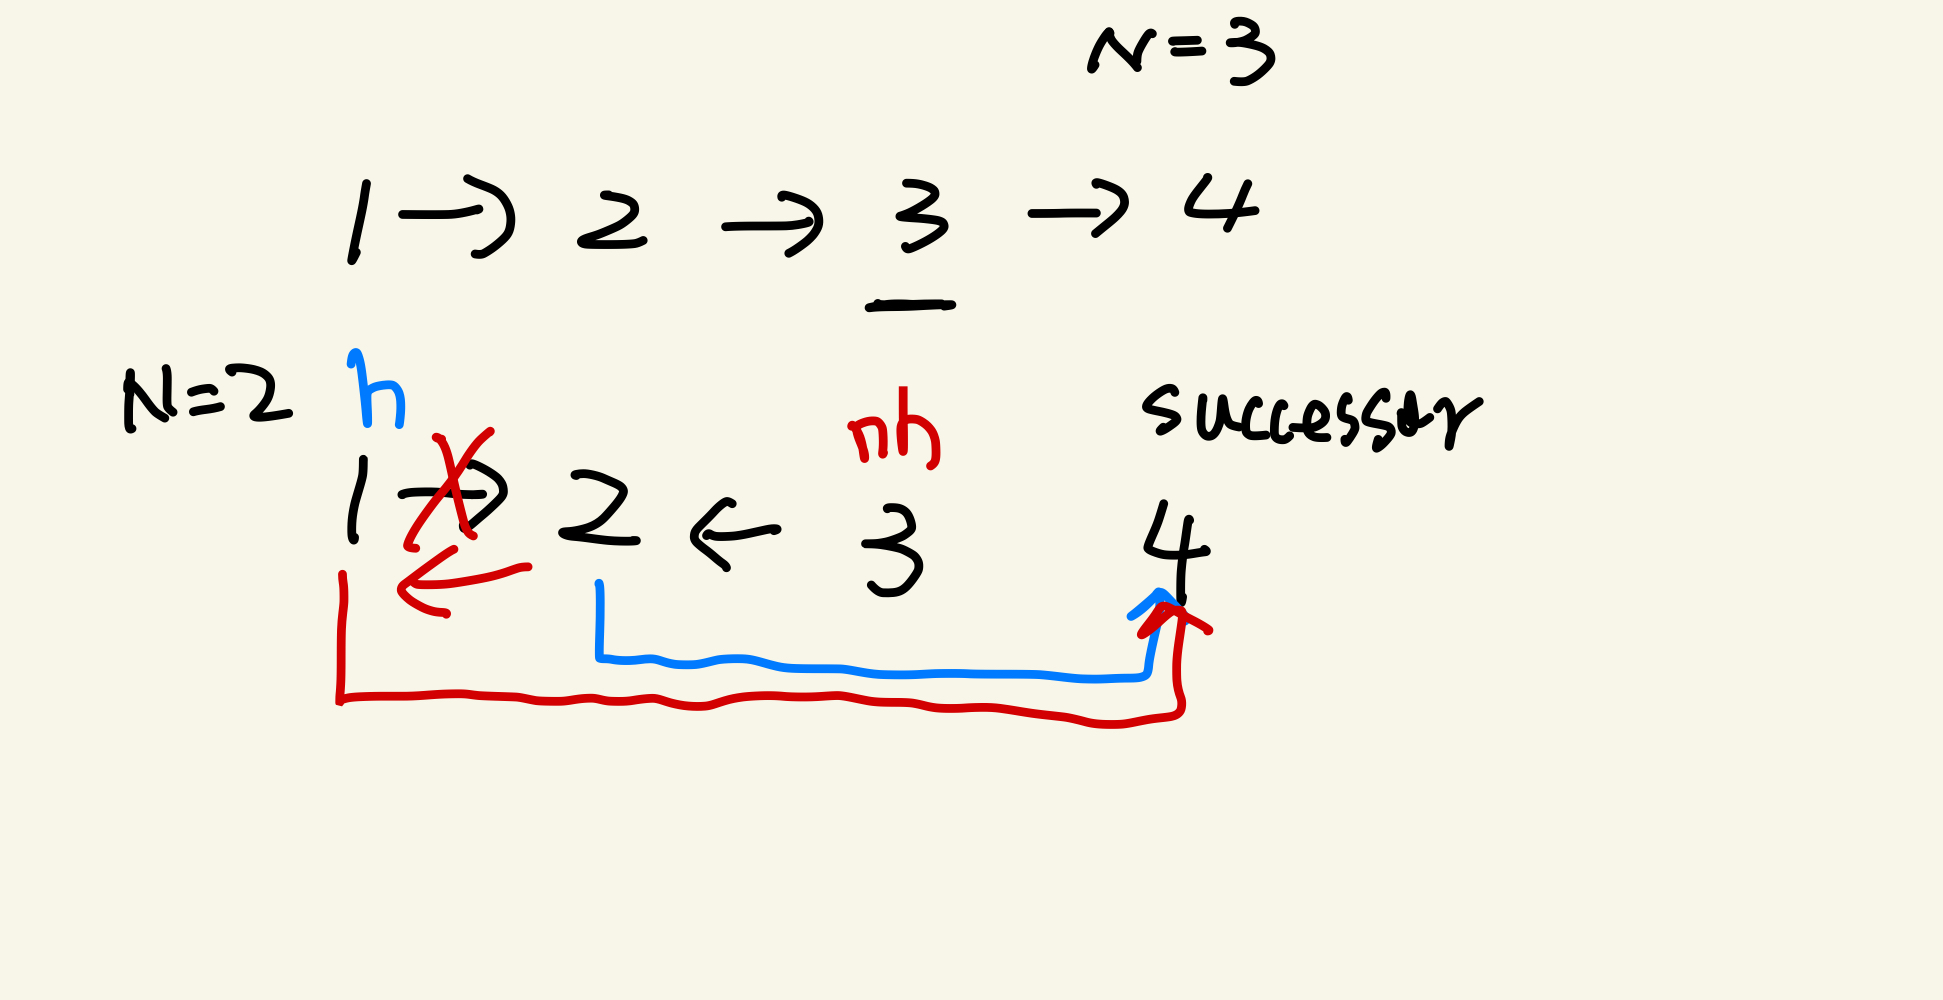 N=3
1 → 2 → 3 → 4
N=2 h
nh successor
1 → 2 ← 3 4